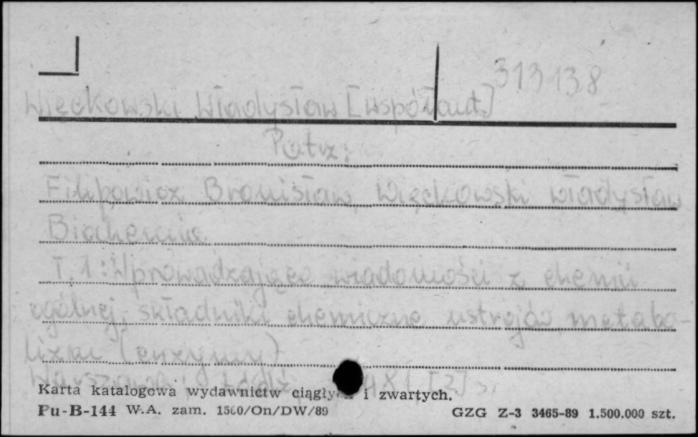 313138
Więckowski Władysław [współaut.]
Patrz:
Filipowicz Bronisław, Więckowski Władysław
Biochemia
T. 1: Wprowadzające wiadomości z chemii
ogólnej, składniki chemiczne ustrojów, metabo-
lizm (enzymy)
Warszawa
Karta katalogowa wydawnictw ciągłych i zwartych.
Pu-B-144 W.A. zam. 1560/On/DW/89 GZG Z-3 3465-89 1.500.000 szt.